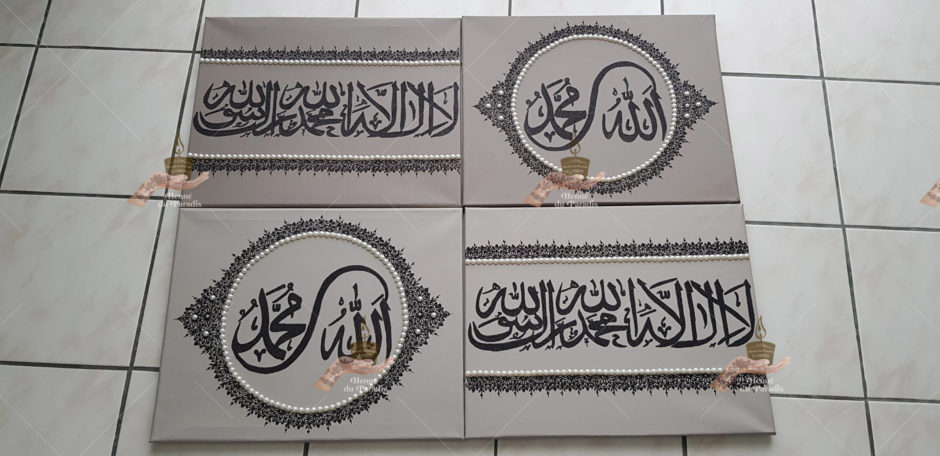 لا إله إلا الله محمد رسول الله
الله محمد
Henné
du Paradis
الله محمد
Henné
du Paradis
لا إله إلا الله محمد رسول الله
Henné
du Paradis
Henné
du Paradis